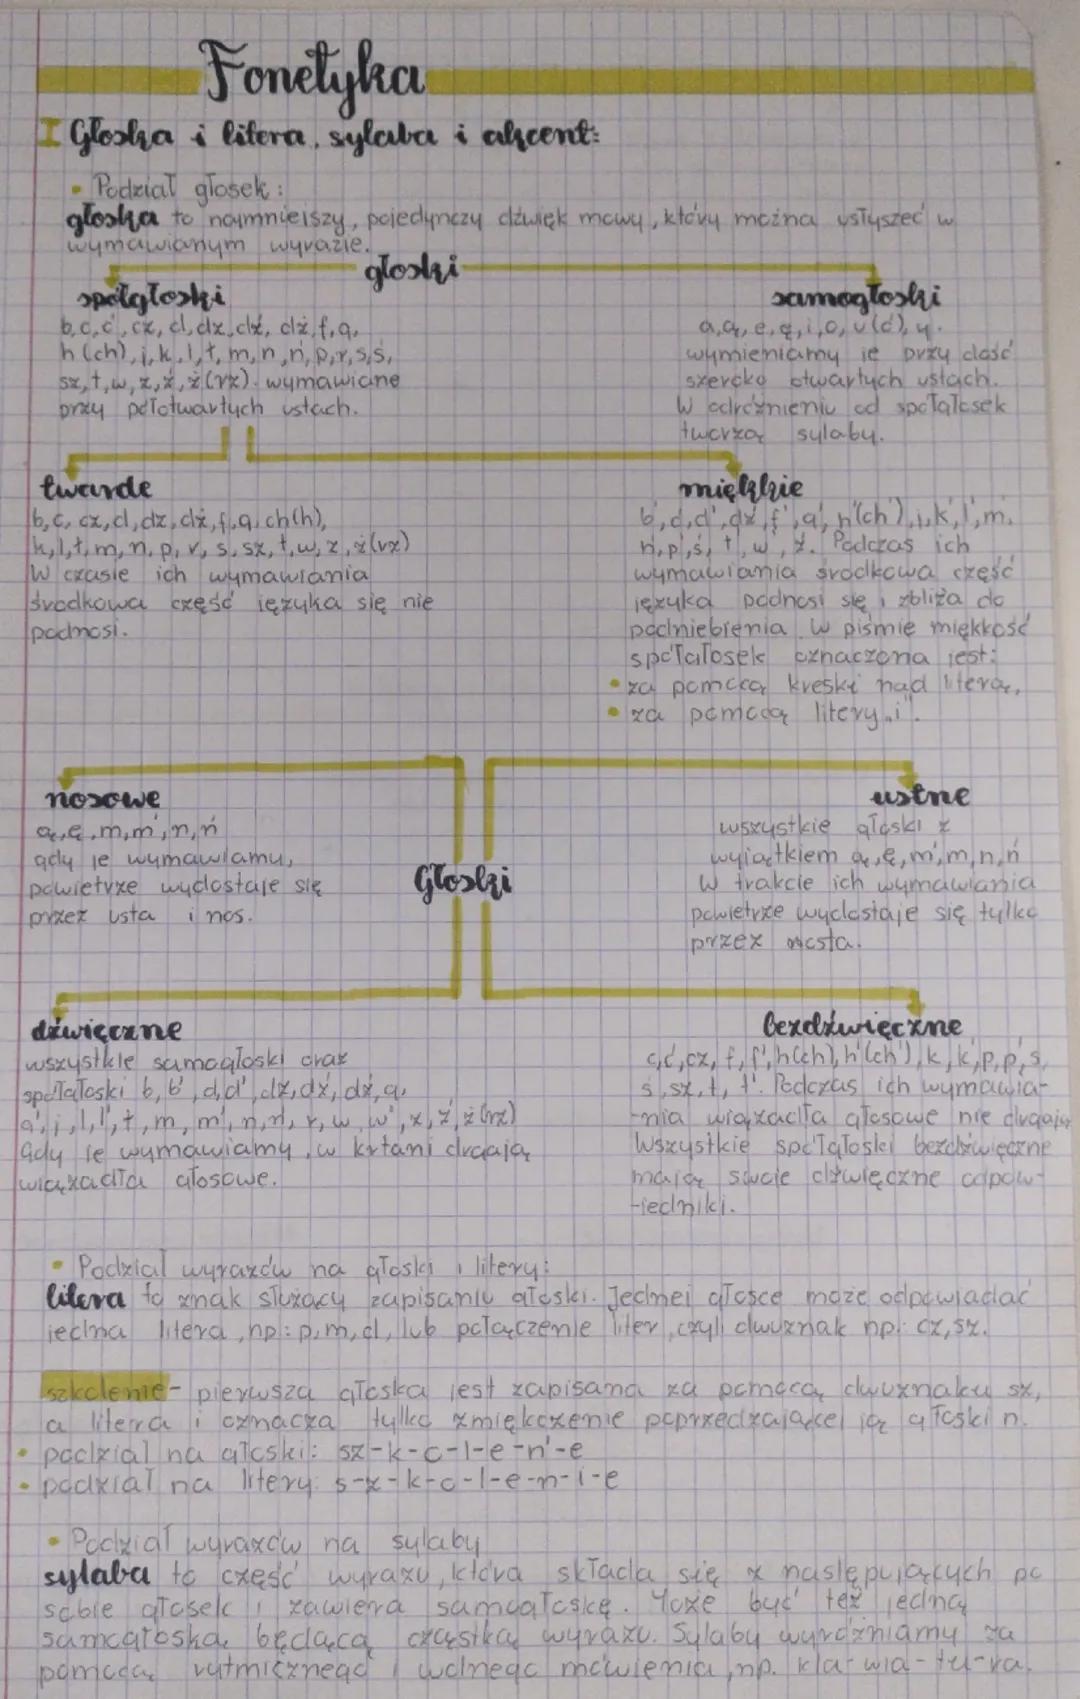 Fonetyka
I Głoska i litera, sylaba i akcent:
• Podział głosek:
głoska to najmniejszy, pojedynczy dźwięk mowy, który można usłyszeć w
wymawianym wyrazie.
głoski
spółgłoski
b, c, ć, cz, d, dz, dź, dż, f, g,
h (ch), j, k, l, ł, m, n, ń, p, r, s, ś,
sz, t, w, z, ź, ż (rz). wymawiane
przy półotwartych ustach.
samogłoski
a, ą, e, ę, i, o, u (ó), y.
wymieniamy je przy dość
szeroko otwartych ustach.
W odróżnieniu od spółgłosek
tworzą sylaby.
twarde
b, c, cz, d, dz, dż, f, g, ch (h),
k, l, ł, m, n, p, r, s, sz, t, w, z, ż (rz)
W czasie ich wymawiania
środkowa część języka się nie
podnosi.
miękkie
b', ć, d', dź, f', g', h' (ch'), j, k', l', m',
ń, p', ś, t', w', ź. Podczas ich
wymawiania środkowa część
języka podnosi się i zbliża do
podniebienia. W piśmie miękkość
spółgłosek oznaczona jest:
• za pomocą kreski nad literą,
• za pomocą litery „i".
nosowe
ą, ę, m, m', n, ń
gdy je wymawiamy,
powietrze wydostaje się
przez usta i nos.
Głoski
ustne
wszystkie głoski z
wyjątkiem ą, ę, m', m, n, ń
W trakcie ich wymawiania
powietrze wydostaje się tylko
przez usta.
dźwięczne
wszystkie samogłoski oraz
spółgłoski b, b', d, d', dz, dź, dż, g,
g', j, l, l', ł, m, m', n, ń, r, w, w', z, ź, ż (rz)
Gdy je wymawiamy, w krtani drgają
wiązadła głosowe.
bezdźwięczne
c, ć, cz, f, f', h (ch), h' (ch'), k, k', p, p', s,
ś, sz, t, t'. Podczas ich wymawia-
-nia wiązadła głosowe nie drgają
Wszystkie spółgłoski bezdźwięczne
mają swoje dźwięczne odpow-
-iedniki.
• Podział wyrazów na głoski i litery:
litera to znak służący zapisaniu głoski. Jednej głosce może odpowiadać
jedna litera, np: p, m, d, lub połączenie liter, czyli dwuznak np: cz, sz.
szkolenie - pierwsza głoska jest zapisana za pomocą dwuznaku sz,
a litera i oznacza tylko zmiękczenie poprzedzającej ją głoski n.
• podział na głoski: sz-k-o-l-e-n'-e
• podział na litery: s-z-k-o-l-e-n-i-e
• Podział wyrazów na sylaby
sylaba to część wyrazu, która składa się z następujących po
sobie głosek i zawiera samogłoskę. Może być też jedną
samogłoską będącą cząstką wyrazu. Sylaby wyróżniamy za
pomocą rytmicznego i wolnego mówienia, np. kla-wia-tu-ra.